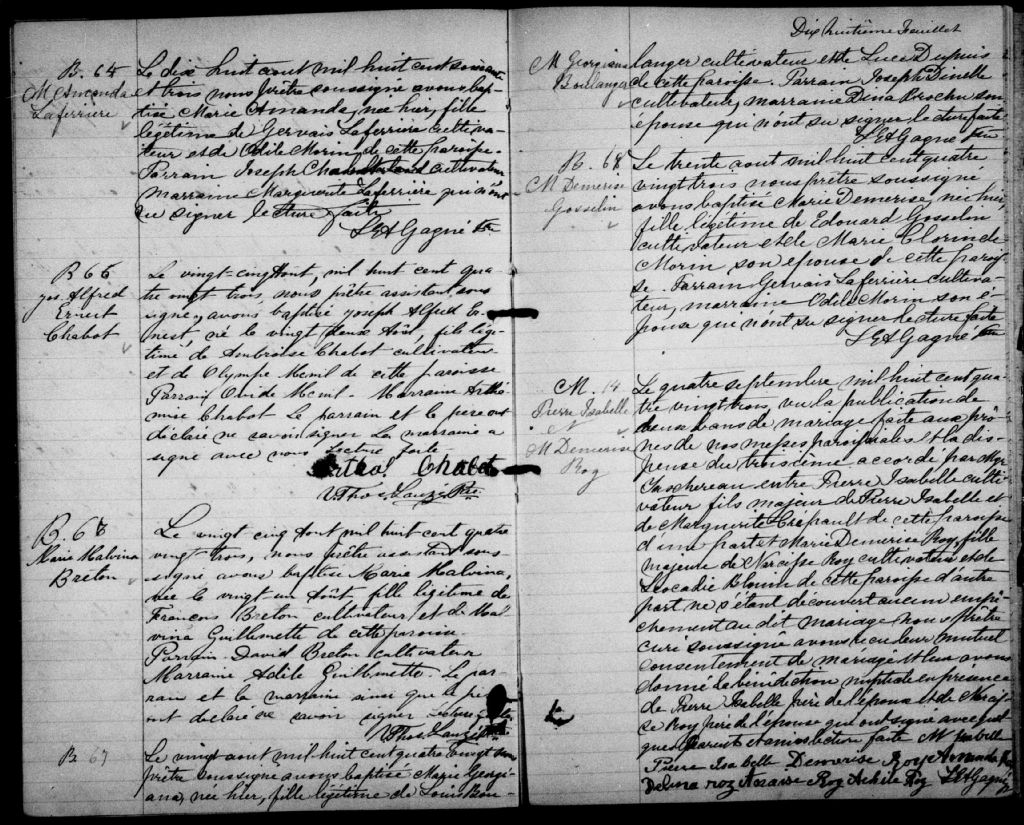 B. 64
M. Amanda
Laferrière
Le dix huit aout mil huit cent soixante
et trois nous prêtre soussigné avons bap-
tisé Marie Amanda, née hier, fille
légitime de Gervais Laferrière cultiva-
teur et de Odile Morin de cette paroisse.
Parrain Joseph cultivateur
marraine Marguerite Laferrière qui n'ont
su signer lecture faite
LEAGagné Ptre
B 66
Jos Alfred
Ernest
Chabot
Le vingt-cinq Aout, mil huit cent qua
tre vingt trois, nous prêtre assistant sous
signé, avons baptisé Joseph Alfred Er-
nest né le vingt deux Août, fils légi-
time de Ambroise Chabot cultivateur
et de Olympe Menil de cette paroisse
Parrain Ovide Menil. Marraine Arthé
mise Chabot Le parrain et le père ont
déclaré ne savoir signer La marraine a
signé avec nous Lecture faite
Chabot
VThos Lauzé Ptre.
B. 68
Marie Malvina
Breton
Le vingt cinq Aout mil huit cent quatre
vingt trois, nous prêtre assistant sous-
signé avons baptisé Marie Malvina,
née le vingt un Août fille légitime de
François Breton cultivateur et de Mal
vina Guillemette de cette paroisse.
Parrain David Breton cultivateur
Marraine Adèle Guillemette. Le par-
rain et la marraine ainsi que le père
ont déclaré ne savoir signer Lecture faite
VThos Lauzé Ptre
B. 67
Le vingt aout mil huit cent quatre vingt trois
prêtre soussigné avons baptisé Marie Georgi-
ana, née hier, fille légitime de Louis Bou-
Dix huitième feuillet
M Georgiana
Boulanger
langer cultivateur et de Luce Dupuis
de cette paroisse. Parrain Joseph Denelle
cultivateur, marraine Dina Brochu son
épouse qui n'ont su signer lecture faite
LEAGagné Ptre
B. 68
M Demerise
Gosselin
Le trente aout mil huit cent quatre
vingt trois nous prêtre soussigné
avons baptisé Marie Demerise, née hier,
fille légitime de Edouard Gosselin
cultivateur et de Marie Clorinde
Morin son épouse de cette parois-
se. Parrain Gervais Laferrière cultiva-
teur, marraine Odile Morin son é-
pouse qui n'ont su signer lecture faite
LEAGagné Ptre
M. 14
Pierre Isabelle
et
M Demerise
Roy
Le quatre septembre mil huit cent qua-
tre vingt trois, vu la publication de
deux bans de mariage faite aux prô-
nes de nos messes paroissiales et la dis-
pense du troisième accordé par Mgr
Taschereau entre Pierre Isabelle culti-
vateur fils majeur de Pierre Isabelle et
de Marguerite Crepault de cette paroisse
d'une part et Marie Demerise Roy, fille
majeure de Narcisse Roy cultivateur et de
Leocadie Blouin de cette paroisse d'autre
part ne s'étant découvert aucun empê-
chement au dit mariage Nous prêtre
curé soussigné avons reçu leur mutuel
consentement de mariage et leur avons
donné la bénédiction nuptiale en presence
de Pierre Isabelle père de l'époux et de Narcis-
se Roy père de l'épouse qui ont signé avec quel
ques parents et amis lecture faite M Isabelle
Pierre Isabelle Demerise Roy Amanda
Delina roy Roy Achile Roy LEAGagné